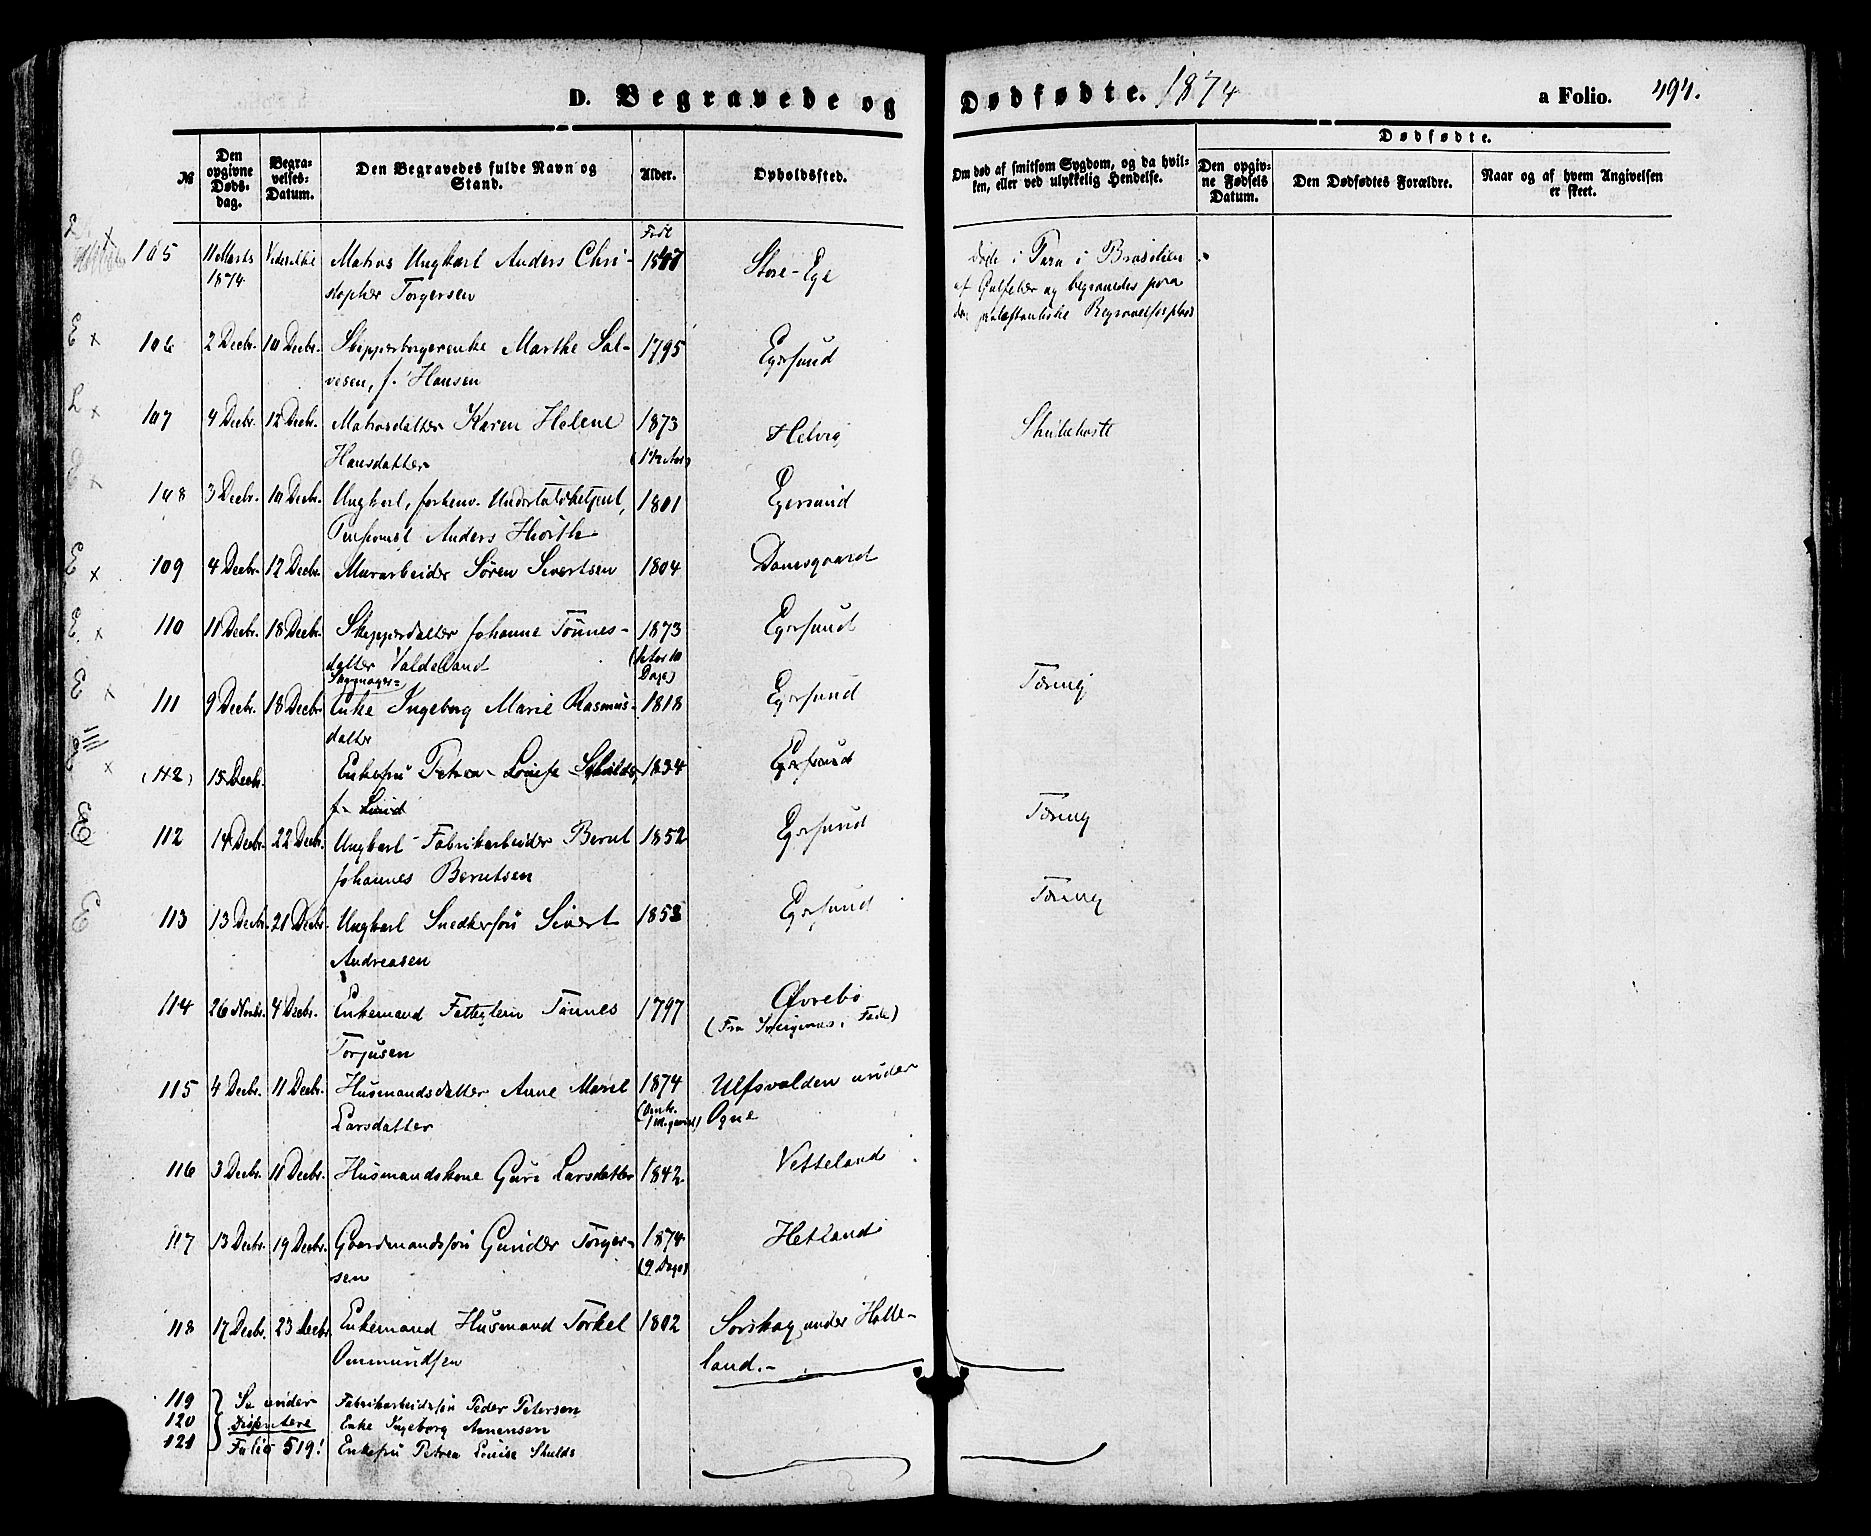 D. Begravede og Dødfødte. 1874 a Folio. 494.
№
Den opgivne Døds-dag.
Begra-velses-Datum.
Den Begravedes fulde Navn og Stand.
Alder.
Opholdssted.
Om død af smitsom Sygdom, og da hvil-ken, eller ved ulykkelig Hendelse.
Dødfødte.
Den opgiv-ne Fødsels Datum.
Den Dødfødtes Forældre.
Naar og af hvem Angivelsen er skeet.
Født
105 11 Marts Matros Ungkarl Anders Chri- 1847 Store-Ege døde i Para i Brasilien
1874 stopher Torgersen af Gulfeber og begravedes paa
den protestantiske Begravelsesplads
E x 106 2 Decbr. 10 Decbr. Skipperborgerenke Marthe Sal- 1795 Egersund
vesen, f. Hansen
L x 107 4 Decbr. 12 Decbr. Matrosdatter Karen Helene 1873 Helvig Strubehoste
Hansdatter (1½ Aar)
E x 108 3 Decbr. 10 Decbr. Ungkarl, forhenv. Undertoldbetjent, 1801 Egersund
Pensionist Anders Hiorth
E x 109 4 Decbr. 12 Decbr. Murarbeider Søren Sivertsen 1804 Damsgaard
E. x 110 11 Decbr. 18 Decbr. Skipperdatter Johanne Tønnes- 1873 Egersund
datter Valdeland (1 Aar 10 Dage)
E x 111 9 Decbr. 18 Decbr. Enke Ingeborg Marie Rasmus- 1818 Egersund Tæring
datter
x (112) 15 Decbr. Enkefru Petrea Louise Skulds, 1834 Egersund
f. Lund
E 112 14 Decbr. 22 Decbr. Ungkarl Fabrikarbeider Bernt 1852 Egersund Tæring
Johannes Berntsen
E 113 13 Decbr. 21 Decbr. Ungkarl Snedkersøn Sivert 1853 Egersund Tæring
Andreasen
114 26 Novbr. 4 Decbr. Enkemand Fattiglem Tønnes 1797 Øvrebø
Torjusen
115 4 Decbr. 11 Decbr. Husmandsdatter Anne Marie 1874 Ulfsvolden under
Larsdatter Ogne
116 3 Decbr. 11 Decbr. Husmandskone Guri Larsdatter 1842 Vetteland
117 13 Decbr. 19 Decbr. Gaardmandssøn Gunder Torger- 1874 Hetland
sen (9 Dage)
118 17 Decbr. 23 Decbr. Enkemand Husmand Torkel 1802 Sorskog under Helle-
Ommundsen land.-
119 Se under Fabrikarbeidersøn Peder Petersen
120 Enke Ingeborg Asmensen
121 Folio 519! Enkefru Petrea Louise Skulds